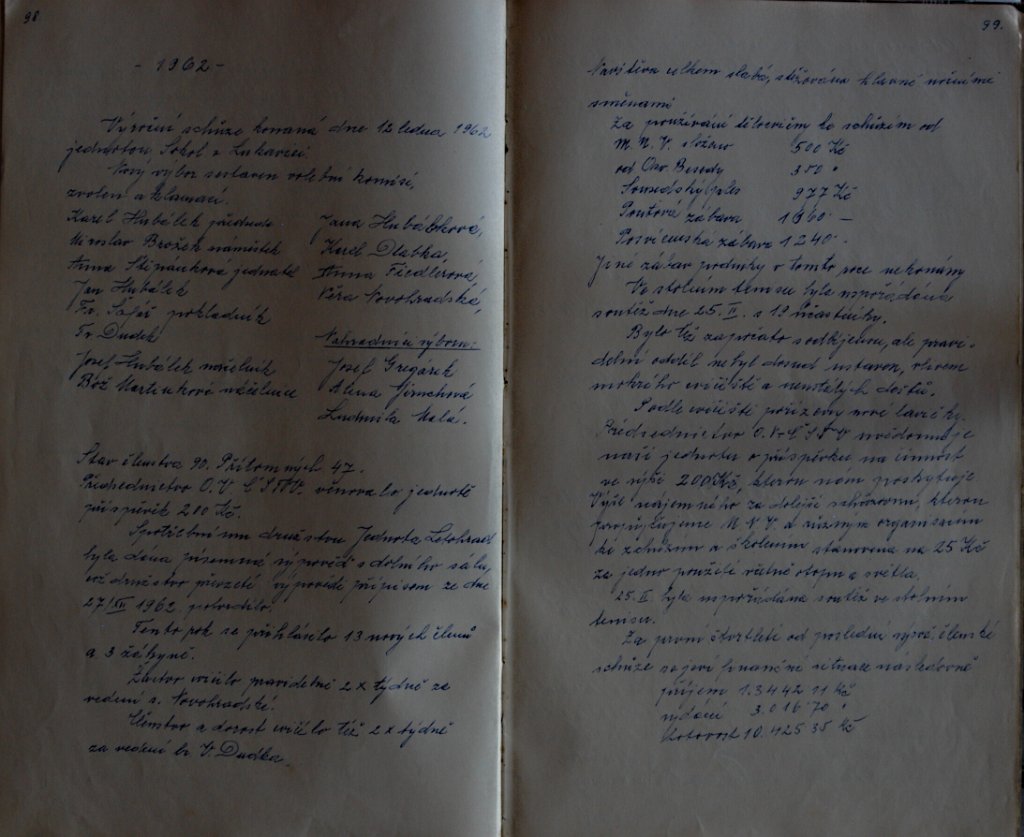 98
- 1962 -
Výroční schůze konaná dne 12 ledna 1962
jednotou Sokol v Lukavici.
Nový výbor sestaven volební komisí,
zvolen aklamací.
Karel Hubálek předseda
Miroslav Brožek náměstek
Anna Štěpánková jednatel
Jan Hubálek
Fr. pokladník
Fr Dudek
Josef Hubálek náčelník
Bož Martinková náčelnice
Jana Hubálková,
Karel Dlabka,
Anna Fiedlerová
Věra Novohradská,
Náhradníci výboru:
Josef Gregárek
Alena
Ludmila Malá.
Stav členstva 90. Přítomných 47.
Předsednictvo O.V. ČSTV. věnovalo jednotě
příspěvek 200 Kč.
Spotřebnímu družstvu Jednota Letohrad
byla dána písemná výpověď s dolního sálu,
což družstvo převzetí výpovědi přípisem ze dne
27/XII 1962 potvrdilo.
Tento rok se přihlásilo 13 nových členů
a 3 žákyně.
Žactvo cvičilo pravidelně 2 x týdně za
vedení s. Novohradské.
Členstvo a dorost cvičilo též 2 x týdně
za vedení br V. Dudka.
99.
Návštěva celkem slabá, stěžována hlavně nočními
směnami
Za používání tělocvičny ke schůzím od
M.N.V. 500 Kč
od Osv. Besedy 350 "
Sousedský ples 977 Kč
Poutová zábava 1060 —
Posvícenská zábava 1240 -
Jiné zábav podniky v tomto roce nekonány
Ve stolním tenisu byla uspořádána
soutěž dne 25. II. s 19 účastníky.
Bylo též započato s odbíjenou, ale pravi-
delní oddíl nebyl dosud ustaven, vlivem
mokrého cvičiště a neustálých dešťů.
Podle cvičiště pořízeny nové lavičky.
Předsednictvo O.V. ČSTV uvědomuje
naši jednotu o příspěvku na činnost
ve výši 200 Kč, kterou nám poskytuje
Výše nájemného za dolejší schůzovnu, kterou
propůjčujeme M N V. a různým organisacím
ke schůzím a školením stanovena na 25 Kč
za jedno použití včetně otopu a světla.
25. II. byla uspořádána soutěž ve stolním
tenisu.
Za první čtvrtletí od poslední výroč. členské
schůze se jeví finanční situace následovně
příjem 13442 11 Kč
vydání 3.016 70 "
Hotovost 10.425 35 Kč